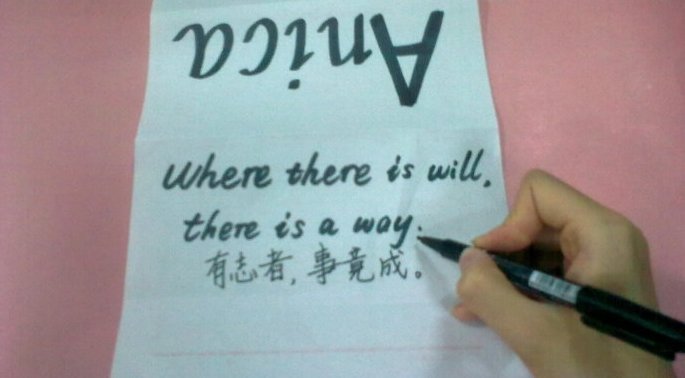 Anica
Where there is will,
there is a way.
有志者,事竟成。